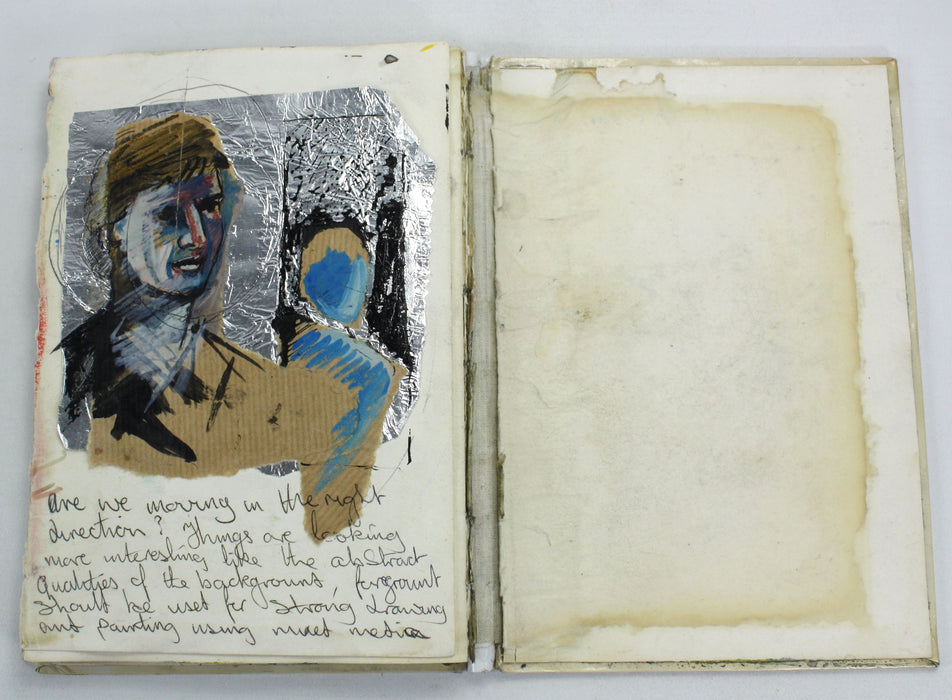 are we moving in the right
direction? Things are looking
more interesting like the abstract
qualities of the background forground
should be used for strong drawing
and painting using mixed media